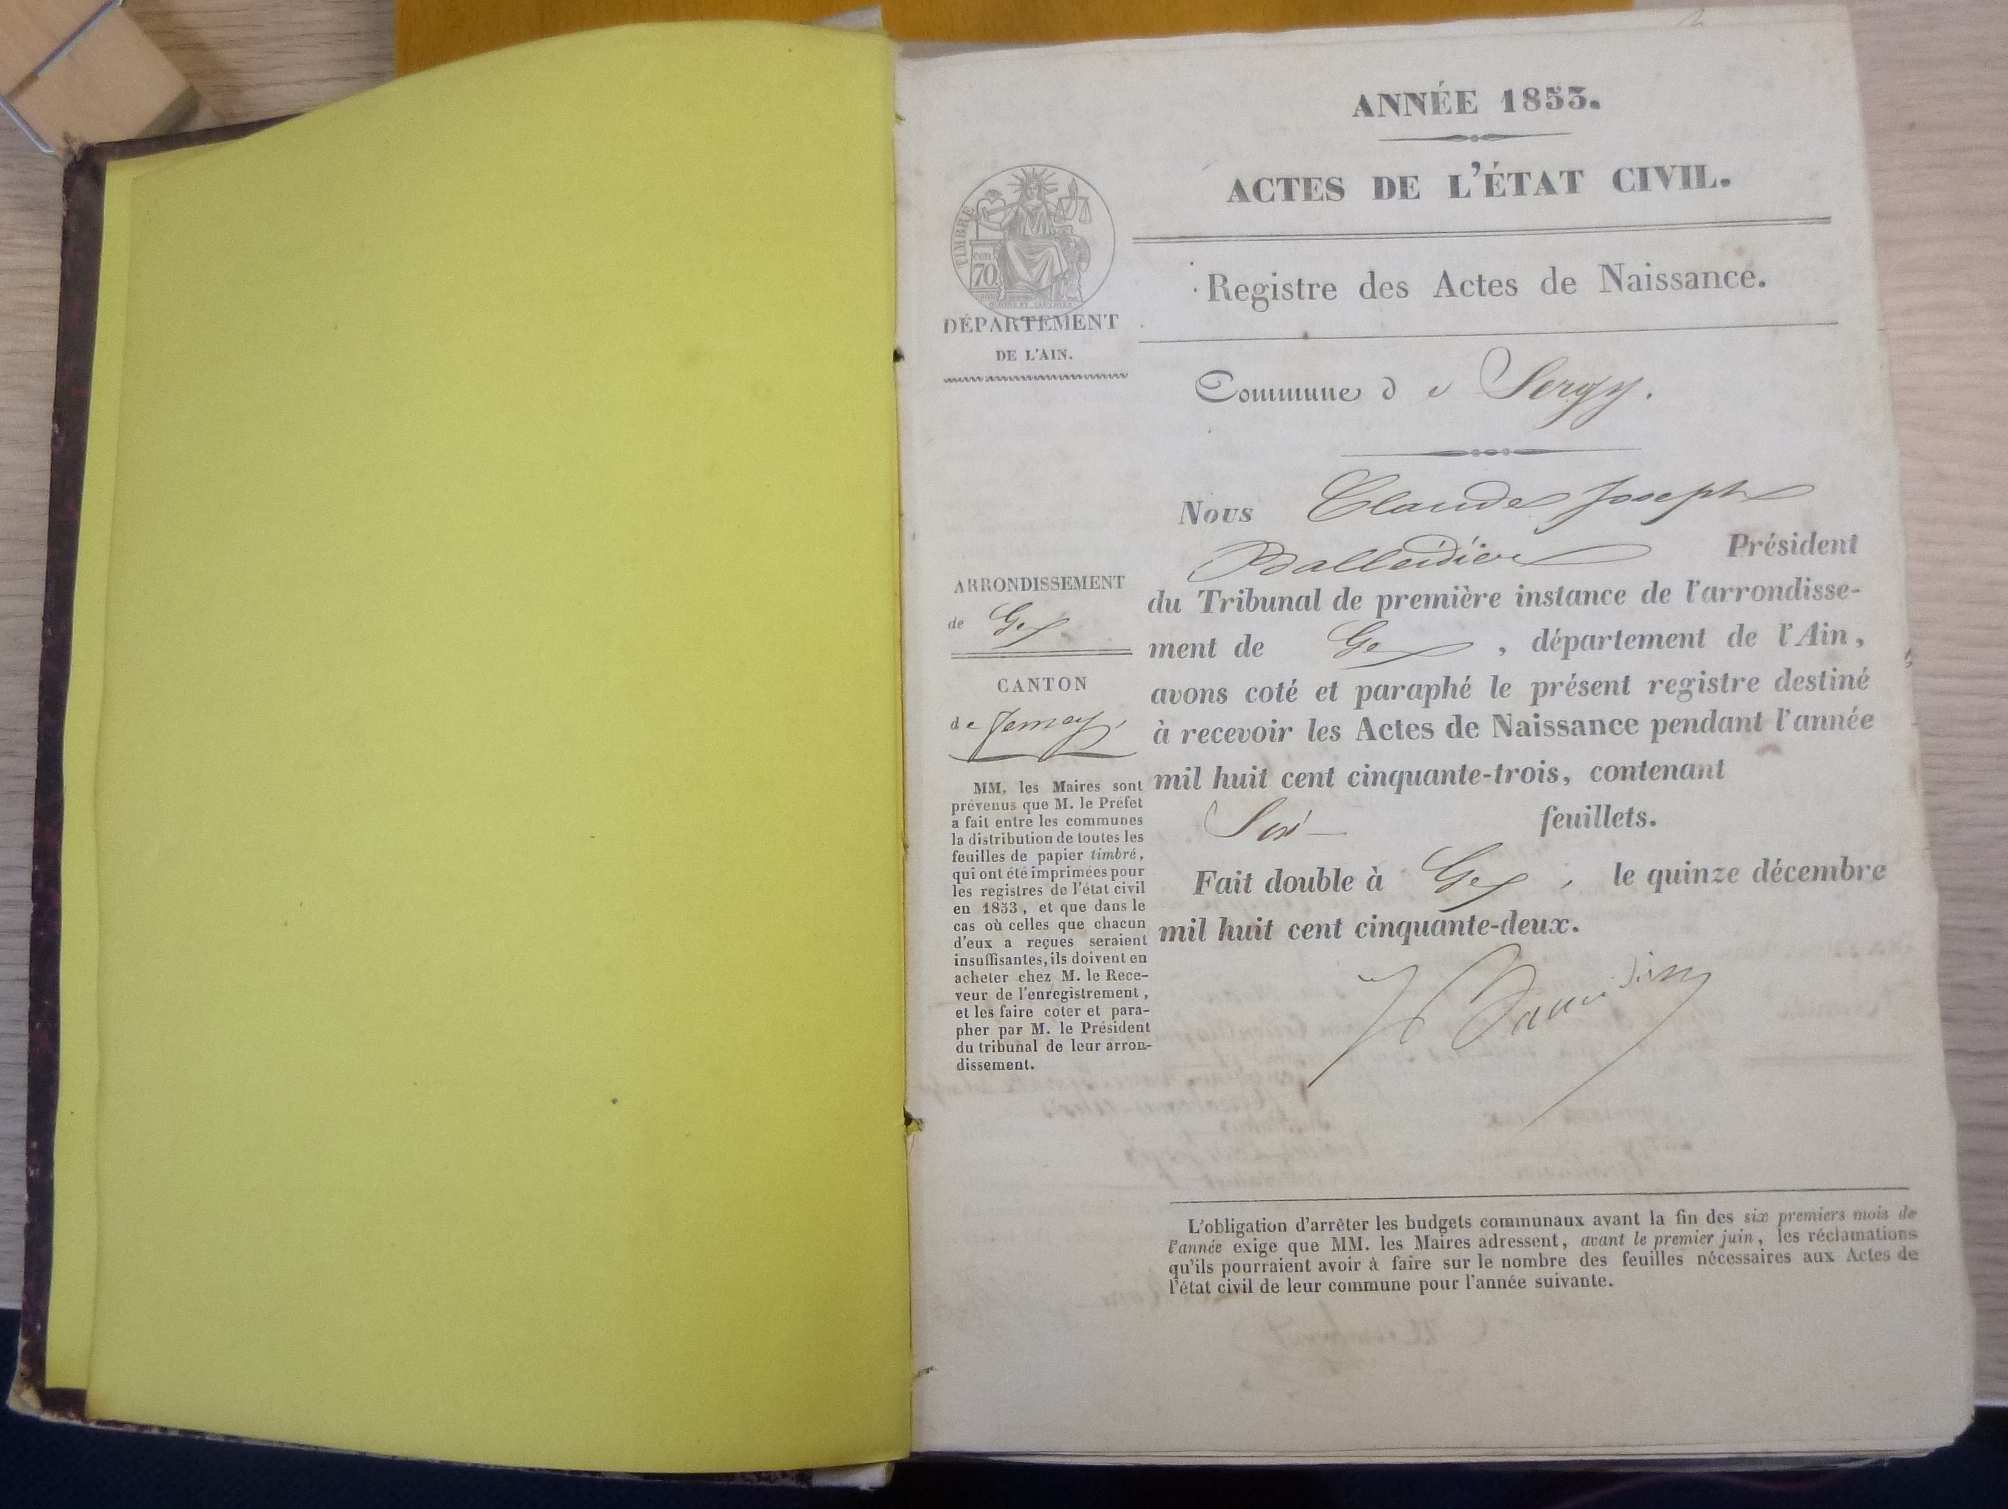 ANNÉE 1853.
ACTES DE L'ÉTAT CIVIL.
TIMBRE
70
Registre des Actes de Naissance.
DÉPARTEMENT
DE L'AIN.
Commune de Sergy.
Nous Claude Joseph
Président
du Tribunal de première instance de l'arrondisse-
ment de Gex, département de l'Ain,
avons coté et paraphé le présent registre destiné
à recevoir les Actes de Naissance pendant l'année
mil huit cent cinquante-trois, contenant
Six feuillets.
Fait double à Gex, le quinze décembre
mil huit cent cinquante-deux.
ARRONDISSEMENT
de Gex
CANTON
de Ferney
MM. les Maires sont
prévenus que M. le Préfet
a fait entre les communes
la distribution de toutes les
feuilles de papier timbré,
qui ont été imprimées pour
les registres de l'état civil
en 1853, et que dans le
cas où celles que chacun
d'eux a reçues seraient
insuffisantes, ils doivent en
acheter chez M. le Rece-
veur de l'enregistrement,
et les faire coter et para-
pher par M. le Président
du tribunal de leur arron-
dissement.
L'obligation d'arrêter les budgets communaux avant la fin des six premiers mois de
l'année exige que MM. les Maires adressent, avant le premier juin, les réclamations
qu'ils pourraient avoir à faire sur le nombre des feuilles nécessaires aux Actes de
l'état civil de leur commune pour l'année suivante.